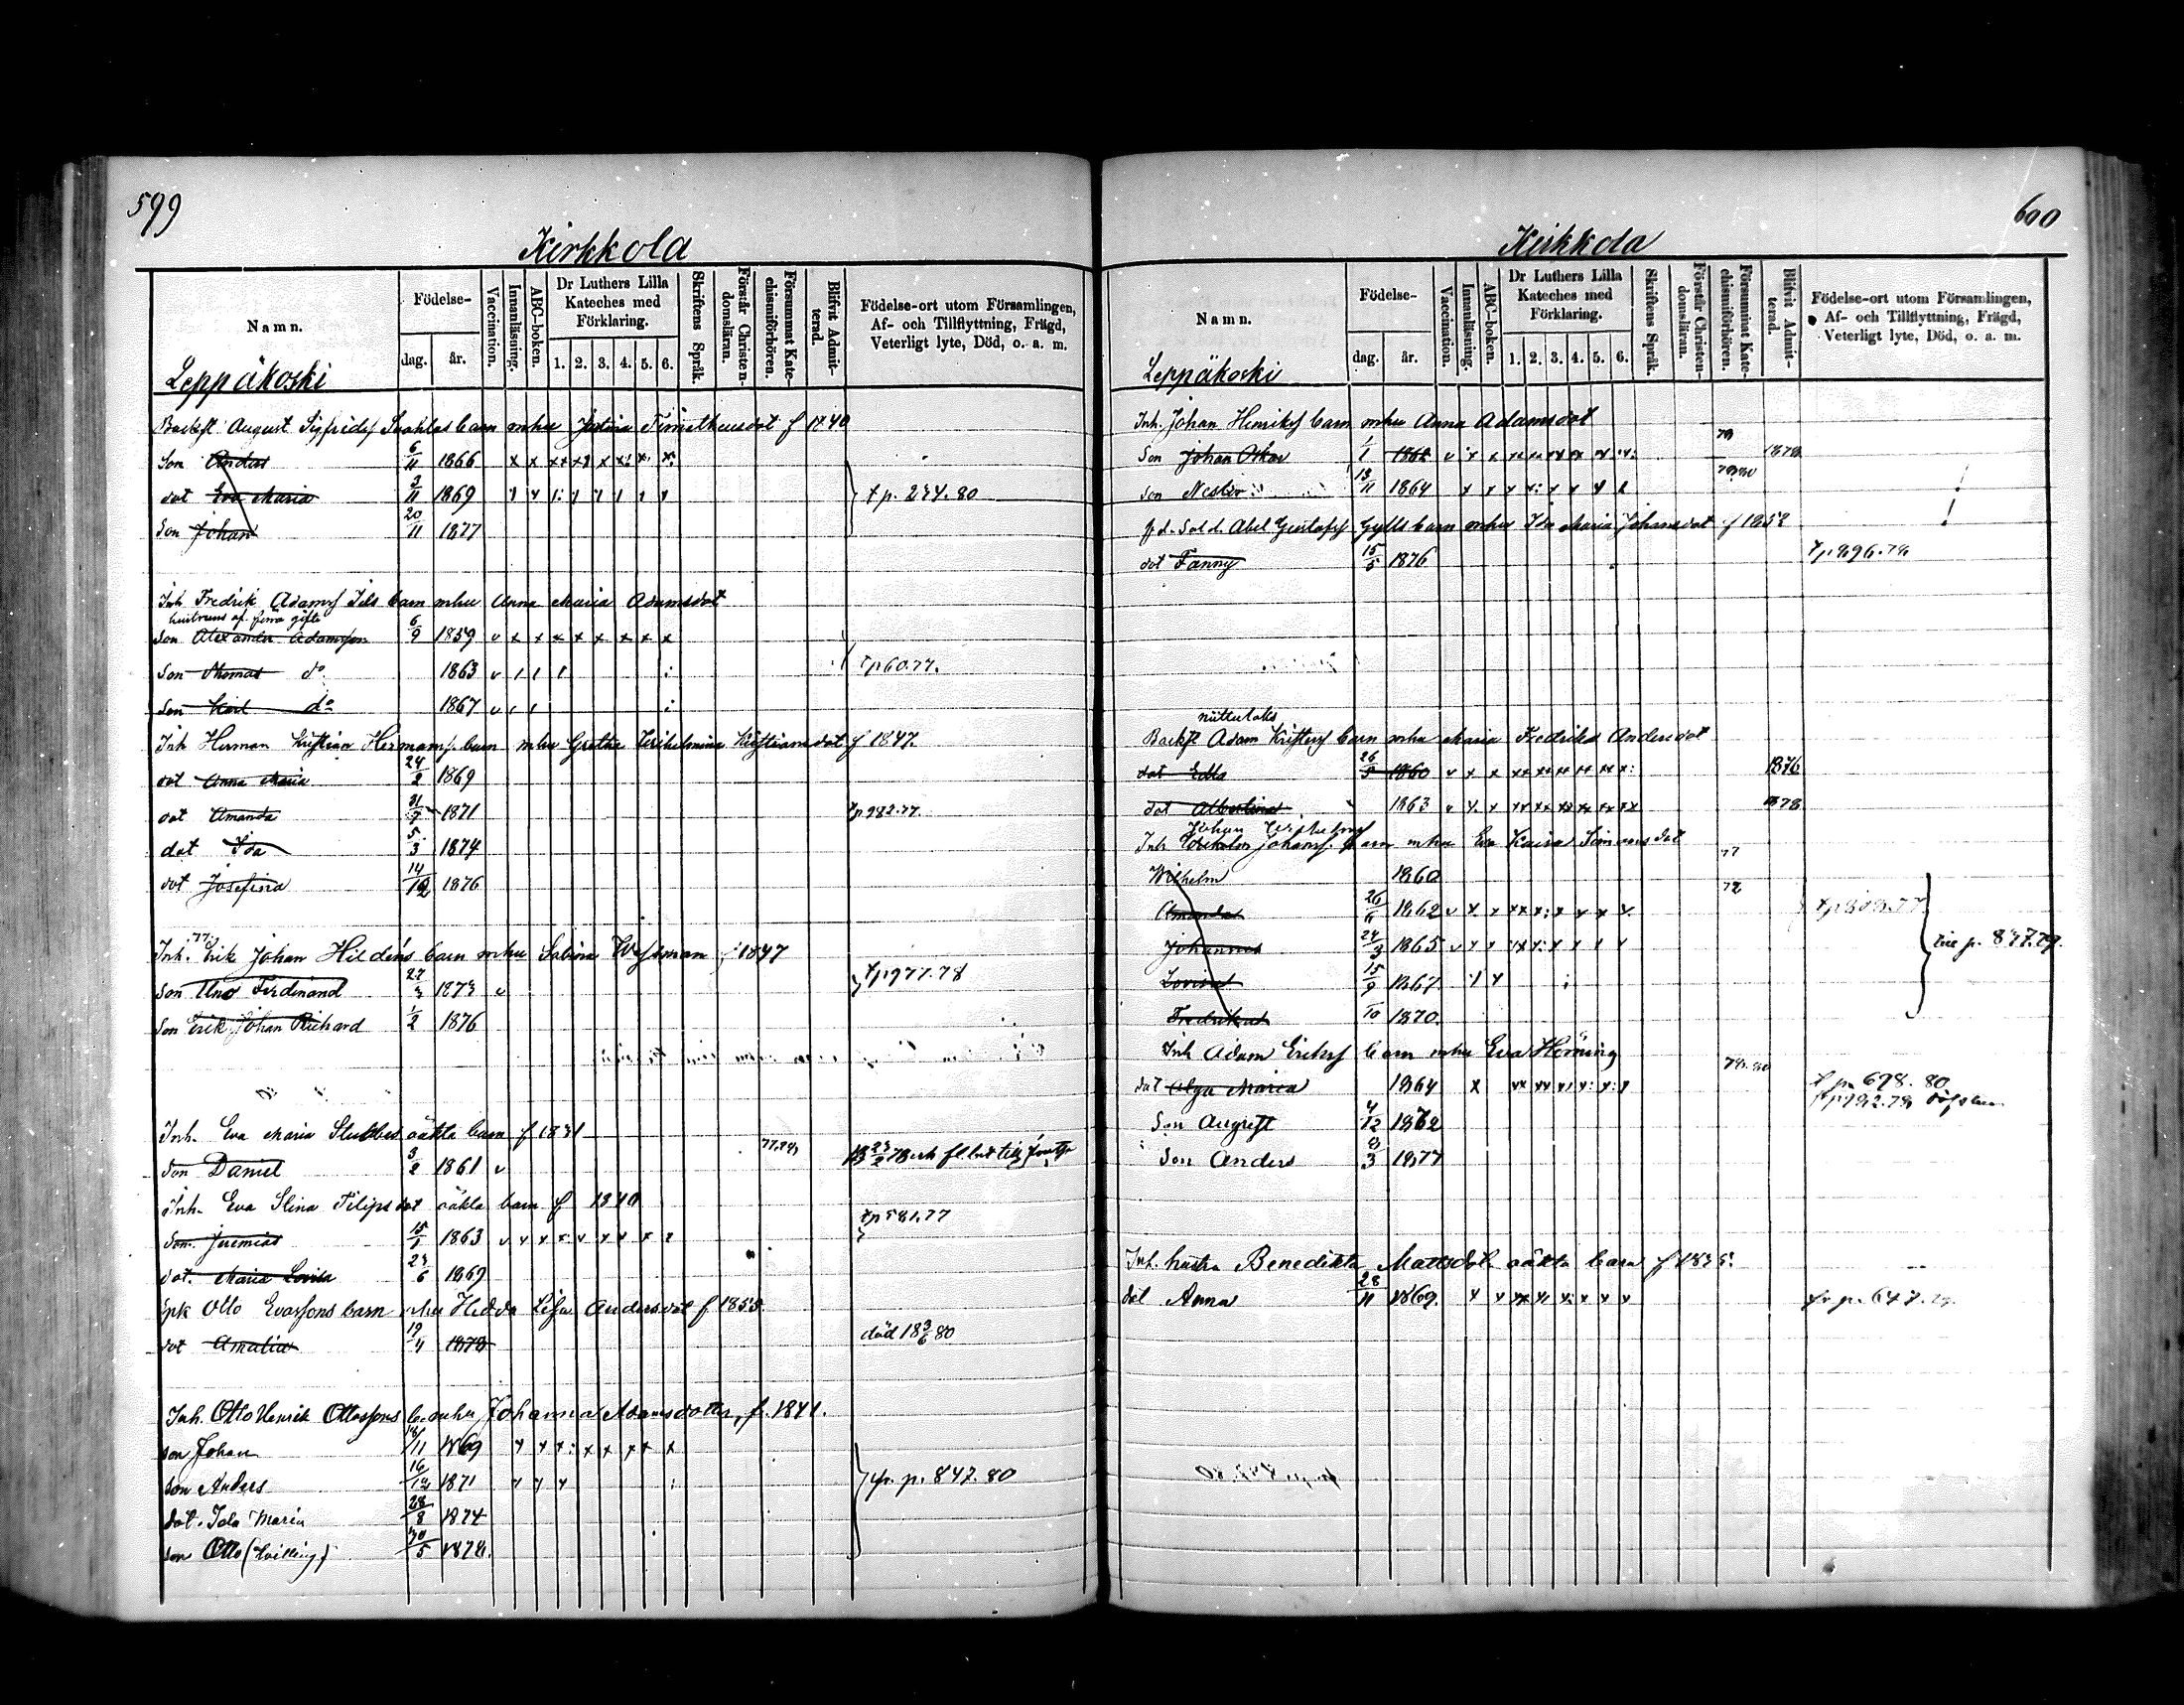 599
Kirkkola
Namn.
Födelse-
dag.
år.
Vaccination.
Innanläsning.
ABC-boken.
Dr Luthers Lilla
Kateches med
Förklaring.
1. 2. 3. 4. 5. 6.
Skriftens Språk.
Förstår Christen-
domsläran.
Försummat Kate-
chismiförhören.
Blifvit Admit-
terad.
Födelse-ort utom Församlingen,
Af- och Tillflyttning, Frägd,
Veterligt lyte, Död, o. a. m.
Leppäkoski
Backst August Sigfrids barn mhu Justina Timotheusdot f 1840
Son Anders 6/11 1866
dot Eva Maria 3/11 1869 p. 234. 80
Son Johan 20/11 1877
Inh Fredrik Adams barn mhu Anna Maria Adamsdot
hustruns af förra gifte
Son Alexander Adamsson 6/9 1859
Son Thomas do 1863 p 60.77.
Son Karl do 1867
Inh Herman Kristian Hermans barn mhu Gretha Wilhelmina Kristiansdot f 1847.
dot Anna Maria 24/2 1869
dot Amanda 31/7 1871 p 982.77.
dot Ida 5/3 1874
dot Josefina 14/12 1876
Inh. Erik Johan Hildéns barn mhu Sabina Westman f 1847
Son Uno Ferdinand 22/3 1873 p 977.78
Son Erik Johan Richard 1/2 1876
Inh. Eva Maria oäkta barn f 1831
Son Daniel 3/2 1861
Inh. Eva Stina Filipsdot oäkta barn f 1840
Son Jeremias 15/1 1863 p 581.77
dot. Maria Lovisa 23/6 1869
Spk Otto Evassons barn mhu Hedda Lisa Andersdot f 1853
dot Amalia 19/4 1878 död 18 3/6 80
Inh. Otto Henrik Ottossons b. mhu Johanna Adamsdotter, f. 1841.
son Johan 18/11 1869
son Anders 16/12 1871 fr. p. 847. 80
dot. Ida Maria 28/8 1874
son Otto (tvilling) 30/5 1878.
600
Kirkkola
Namn.
Födelse-
dag.
år.
Vaccination.
Innanläsning.
ABC-boken.
Dr Luthers Lilla
Kateches med
Förklaring.
1. 2. 3. 4. 5. 6.
Skriftens Språk.
Förstår Christen-
domsläran.
Försummat Kate-
chismiförhören.
Blifvit Admit-
terad.
Födelse-ort utom Församlingen,
Af- och Tillflyttning, Frägd,
Veterligt lyte, Död, o. a. m.
Leppäkoski
Inh. Johan Henriks barn mhu Anna Adamsdot
Son Johan Oskar 1/1 1862 1878
Son Nestor 13/11 1864
fd. Sold. Abel Gustafs Gylls barn mhu Ida Maria Johansdot f 1852
dot Fanny 15/5 1876 p 896.78
Backst Adam Kristers barn mhu Maria Fredrika Andersdot
dot Edla 26/5 1860 1876
dot Albertina 1863 1878
Johan Wilhelms
Inh Wilhelm Johans. barn mhu Eva Kaisa Simonsdot 77
Wilhelm 1860 72
Amanda 26/6 1862
Johannes 24/3 1865 till p. 877.79.
Lovisa 15/9 1867
Fredrika 10 1870.
Inh Adam Eriks barn mhu Eva Höming
dot Olga Maria 1864 p. 698. 80
Son August 4/12 1862
Son Anders 8/3 1877
Inh. hustru Benedikta Mattsdot. oäkta barn f 1835.
dot Anna 28/11 1869. fr p. 647. 79.